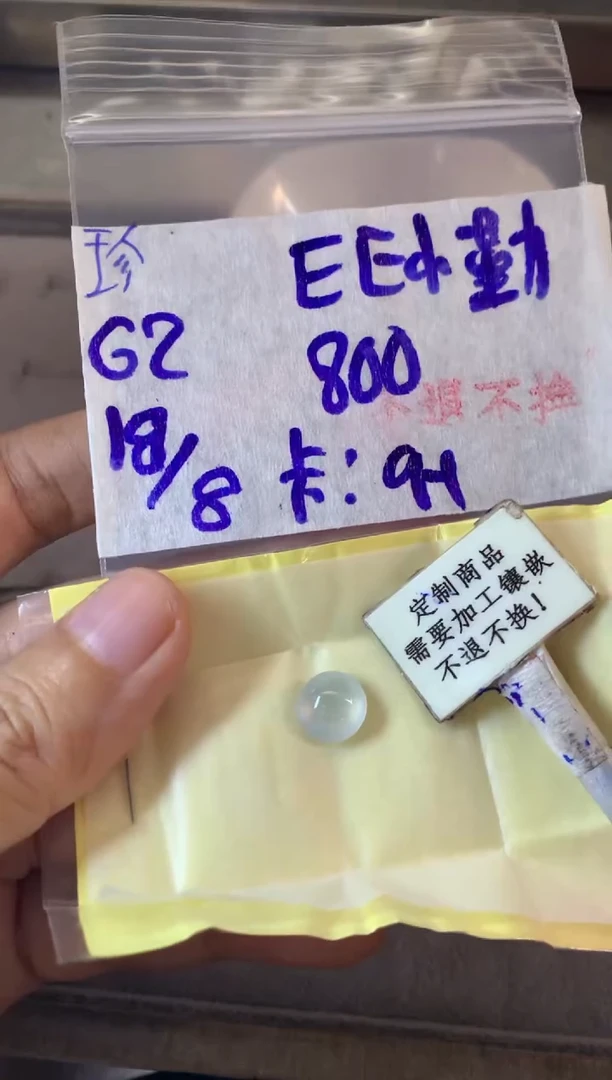 珍 EE小勤
G2 800
不退不换
18/8 卡：94
定制商品
需要加工镶嵌
不退不换！